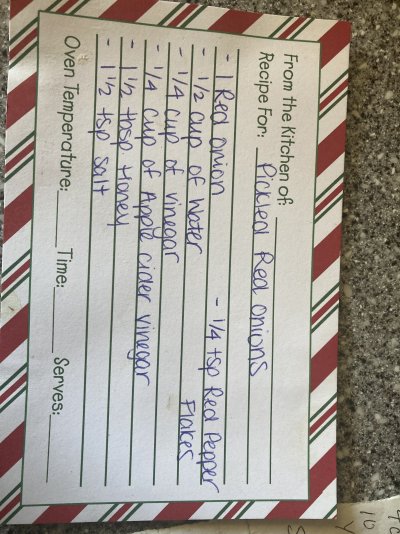 From the Kitchen of:
Recipe For: Pickled Red Onions
- 1 Red onion - 1/4 tsp Red Pepper Flakes
- 1/2 cup of water
- 1/4 cup of vinegar
- 1/4 cup of Apple cider vinegar
- 1 1/2 tbsp Honey
- 1 1/2 tsp salt
Oven Temperature: Time: Serves:
10